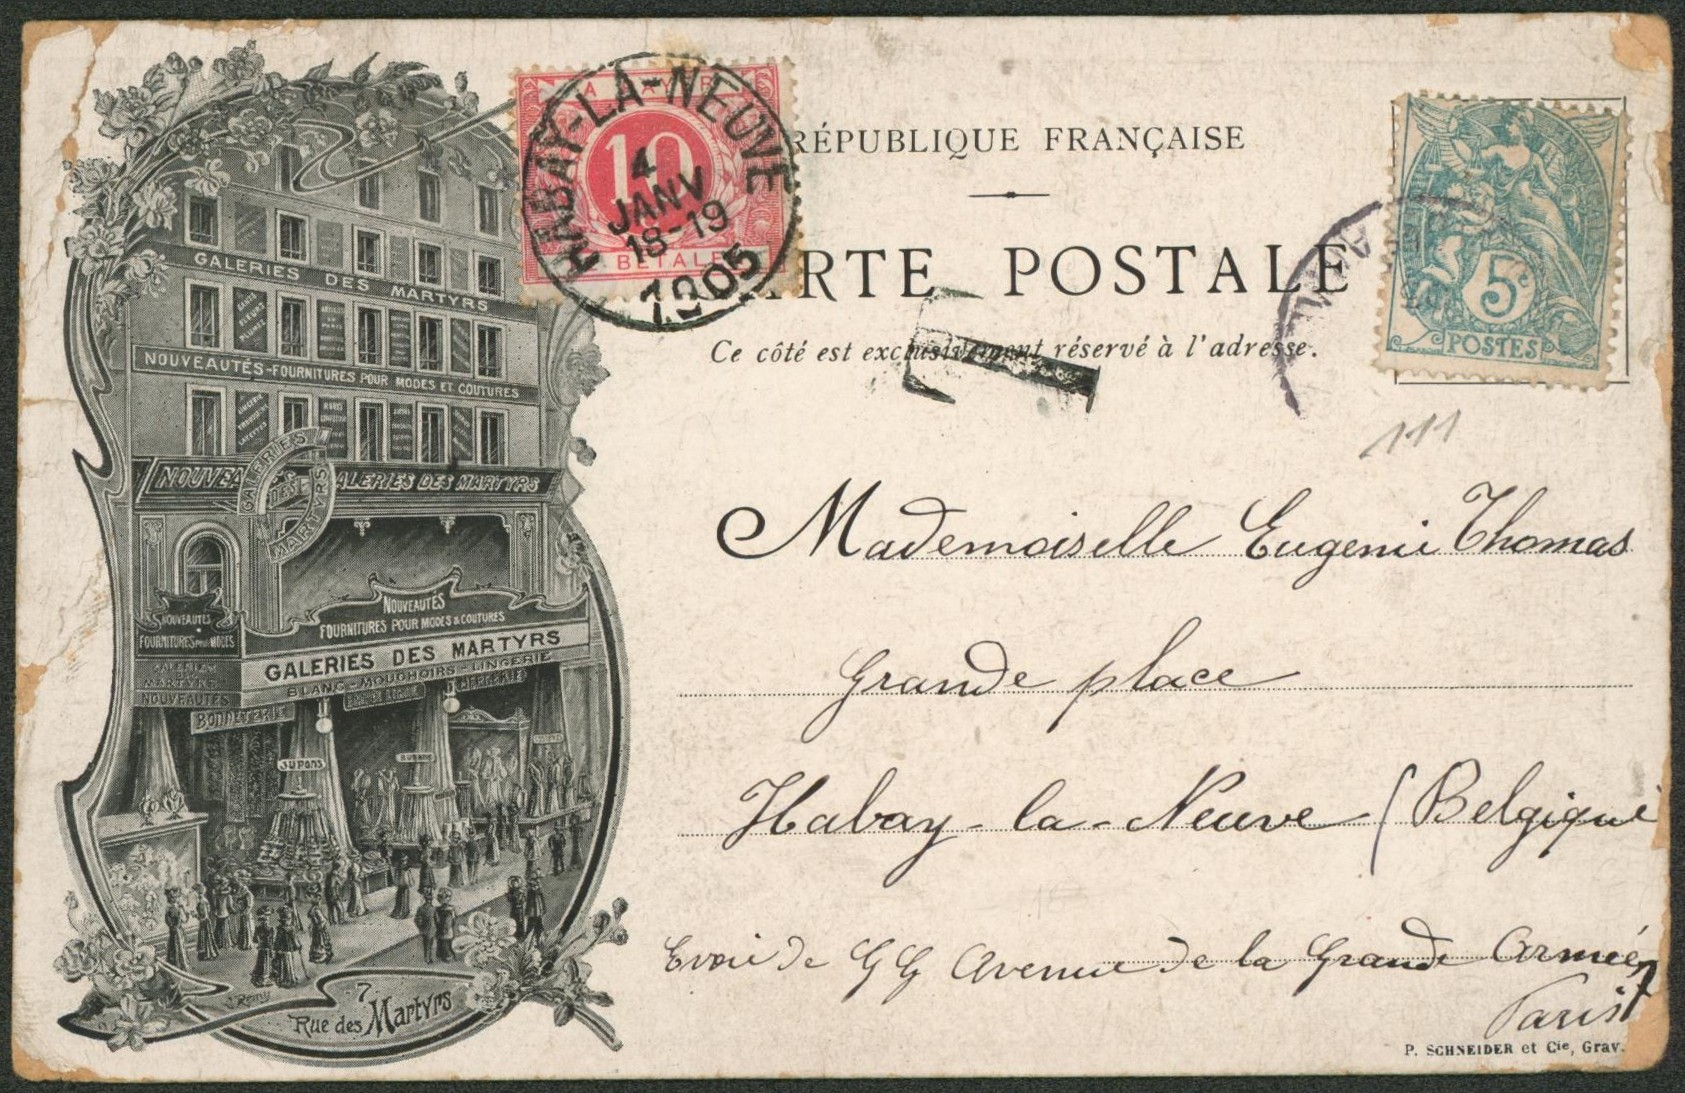 RÉPUBLIQUE FRANÇAISE
CARTE POSTALE
Ce côté est exclusivement réservé à l'adresse.
A PAYER
10
TE BETALEN
HABAY-LA-NEUVE
4
JANV
18-19
1905
T
5c
POSTES
111
Mademoiselle Eugenie Thomas
Grande place
Habay-la-Neuve (Belgique
Evoi de G G Avenue de la Grande Armée
Paris
P. SCHNEIDER et Cie, Grav.
GALERIES DES MARTYRS
GANTS
FLEURS
PLUMES
NOUVEAUTÉS-FOURNITURES POUR MODES ET COUTURES
NOUVEA GALERIES DES MARTYRS
GALERIES
DES
MARTYRS
NOUVEAUTÉS
FOURNITURES POUR MODES & COUTURES
GALERIES DES MARTYRS
BLANC-MOUCHOIRS-LINGERIE
NOUVEAUTÉS
FOURNITURES POUR MODES
GALERIES
MARTYRS
NOUVEAUTÉS
BONNETERIE
MERCERIE
JUPONS
RUBANS
J. Remy
7
Rue des Martyrs